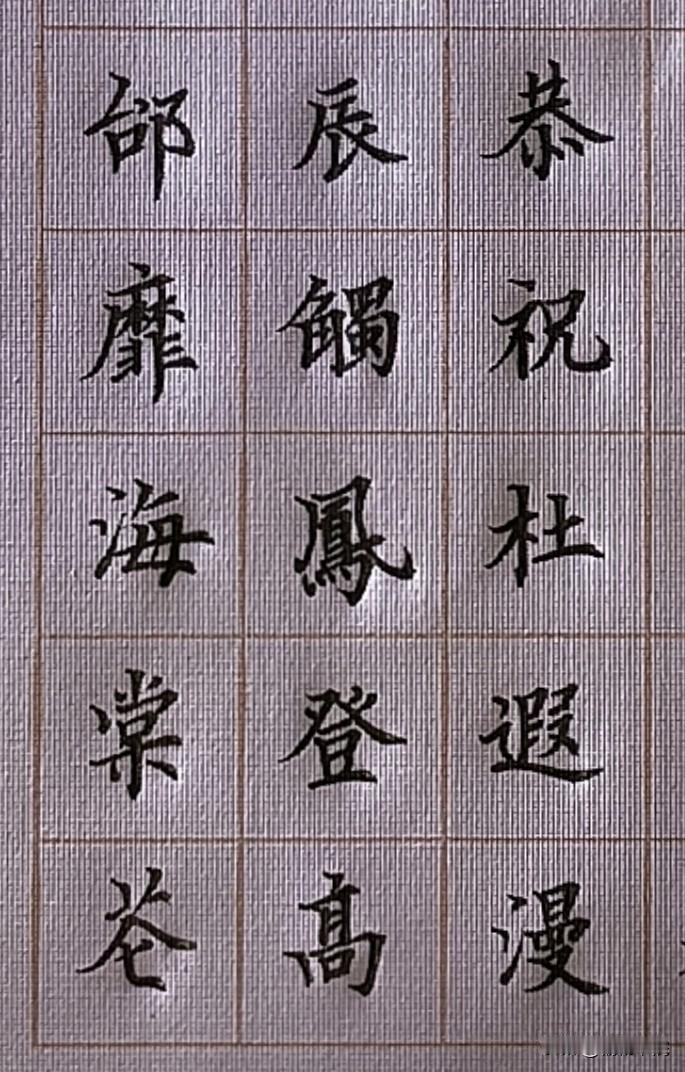 恭祝杜遐漫
辰觸鳳登高
邰靡海棠苍